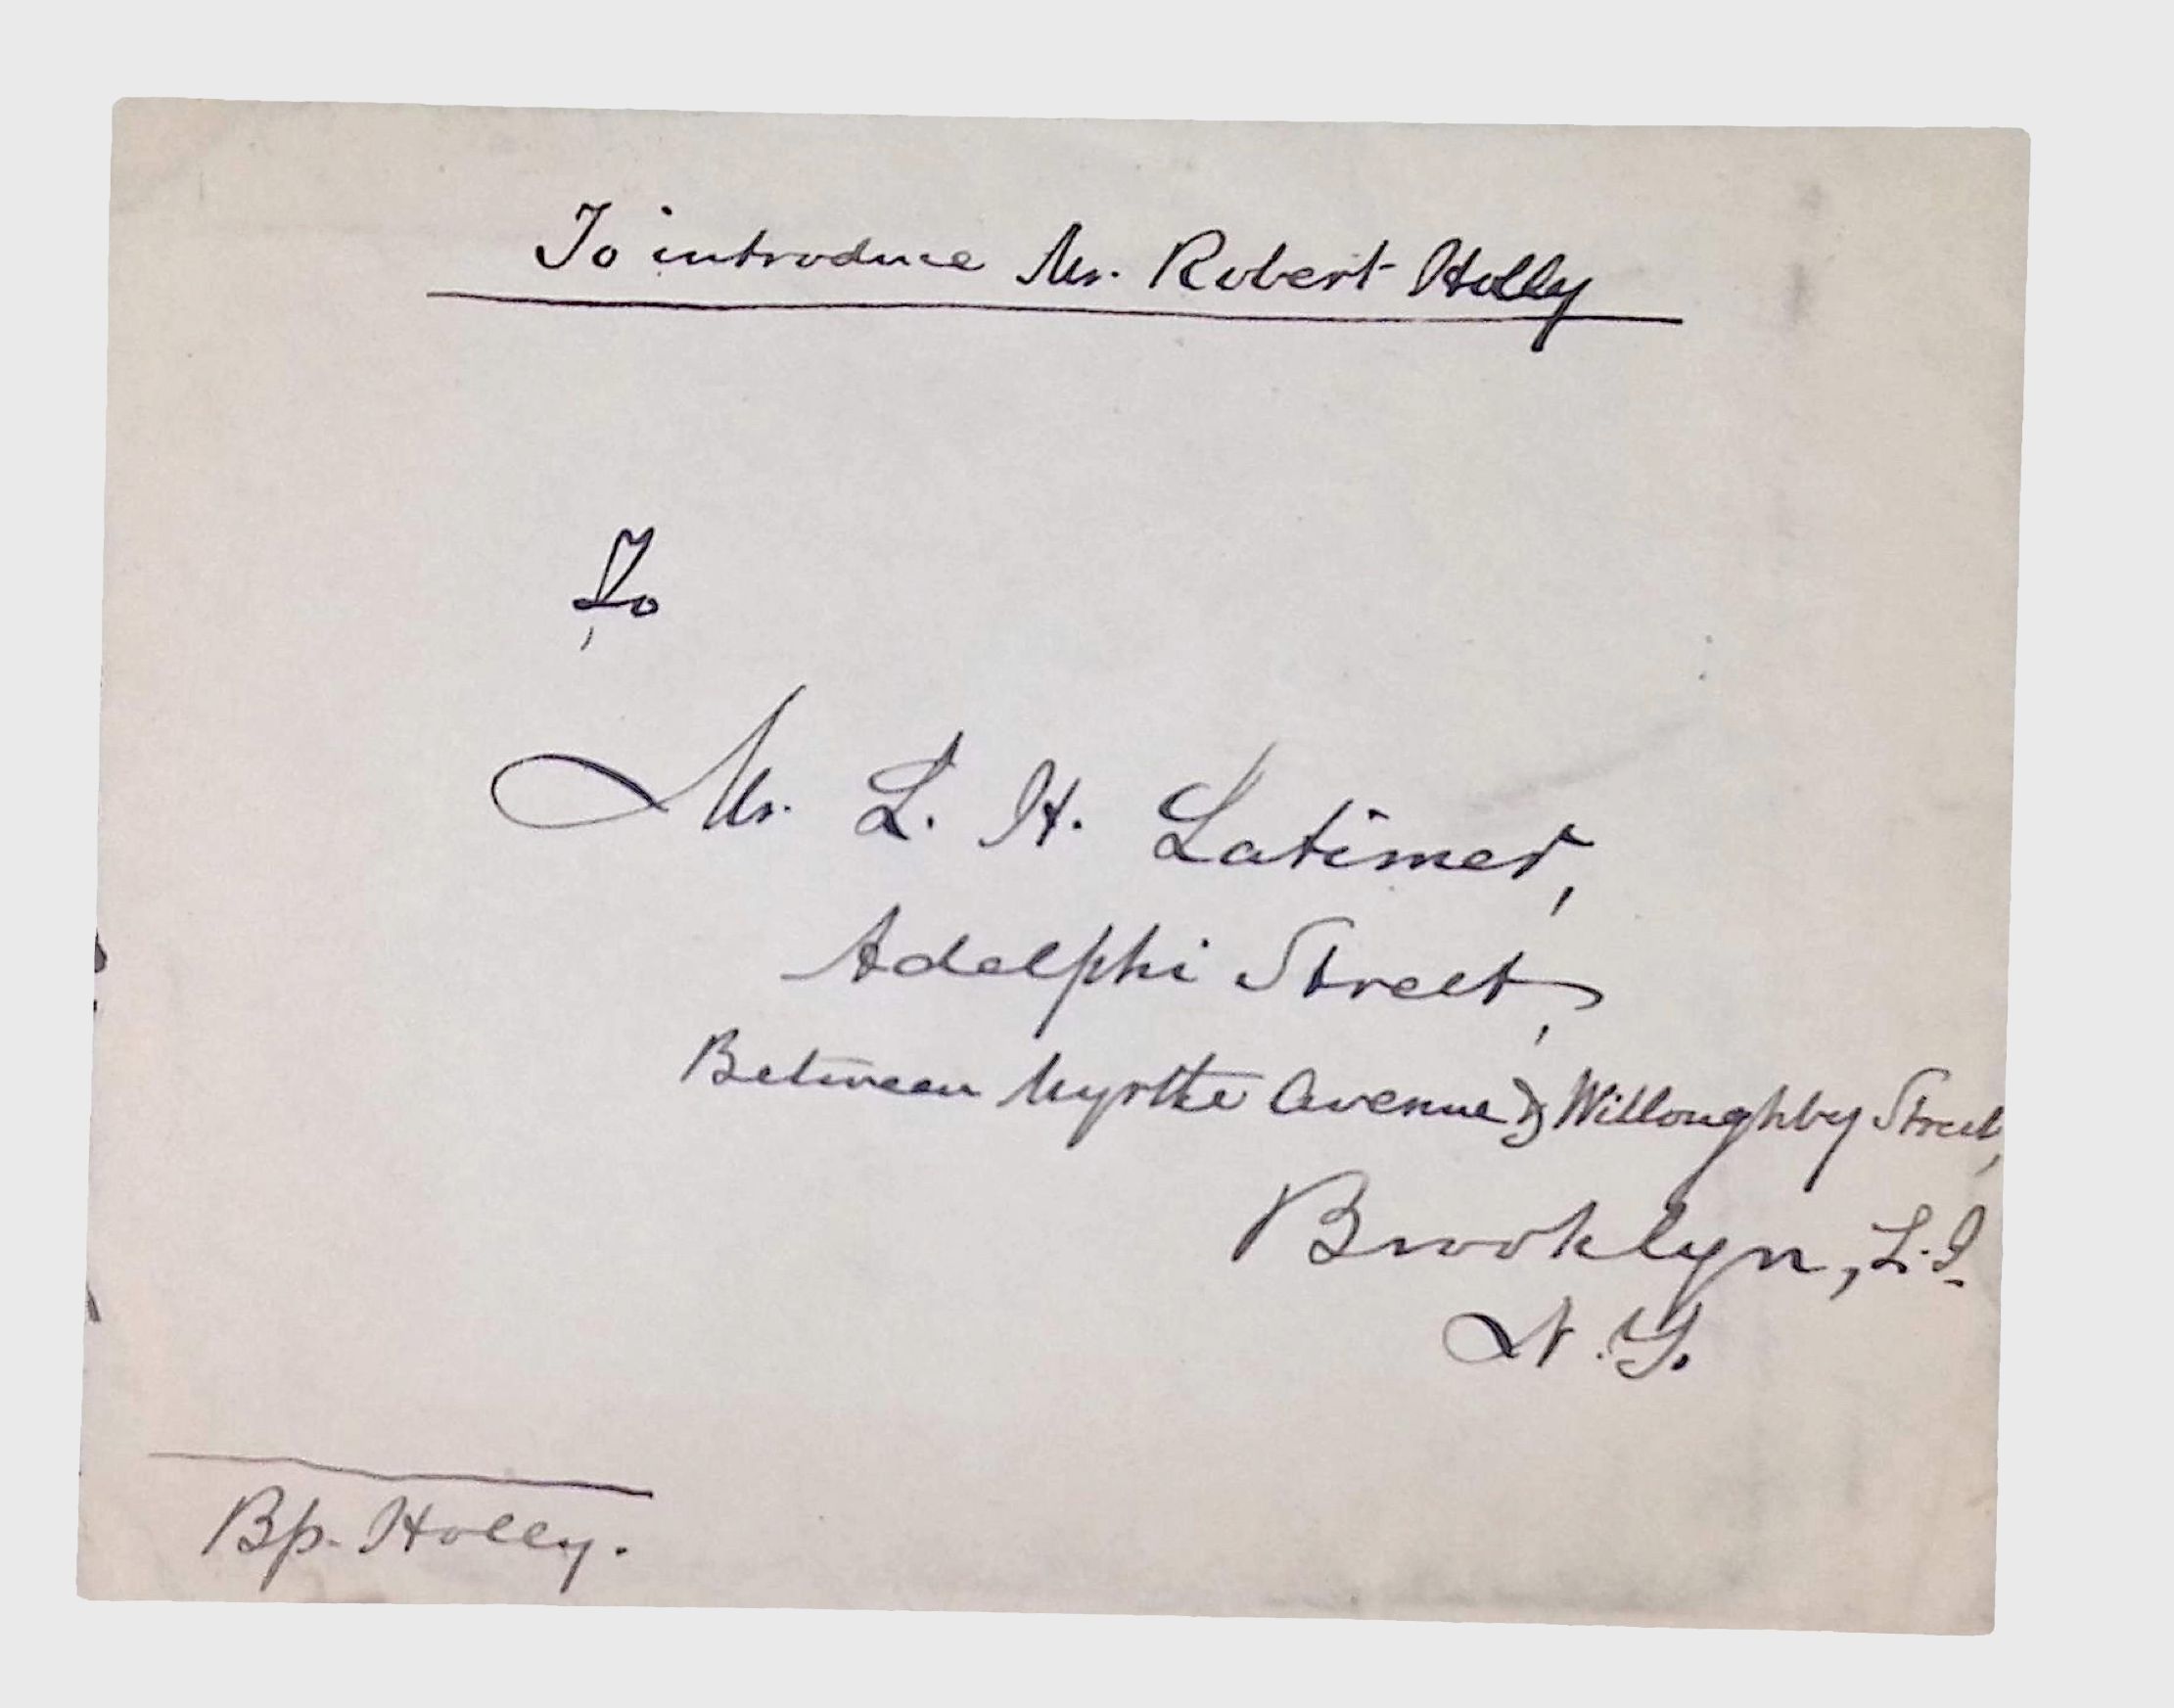 To introduce Mr. Robert Holly
To
Mr. L. H. Latimer,
Adelphi Street,
Between Myrtle Avenue & Willoughby Street,
Brooklyn, L. I.
N. Y.
Bp. Holly.